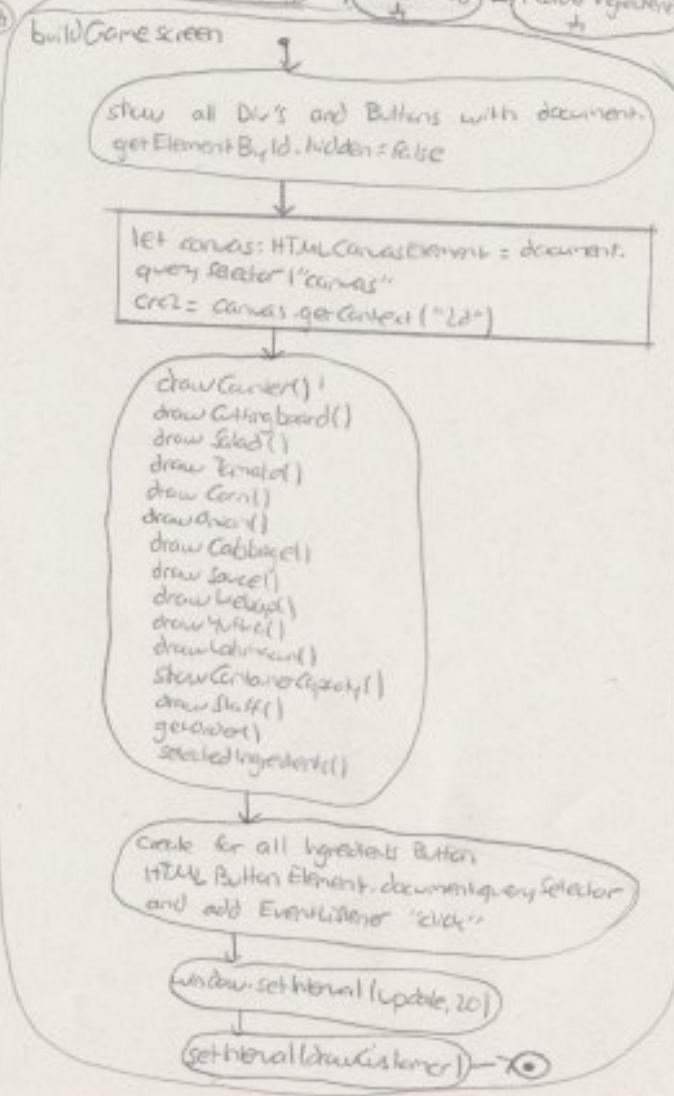 buildGame screen
show all Div's and Buttons with document.
getElementById.hidden = false
let canvas: HTMLCanvasElement = document.
querySelector("canvas"
crc2 = canvas.getContext("2d")
drawCounter()
drawCuttingboard()
drawSalad()
drawTomato()
drawCorn()
drawOnion()
drawCabbage()
drawSauce()
drawKebap()
drawYufka()
drawLahmacun()
showContainerCapacity()
drawStaff()
getOrder()
selectedIngredients()
create for all Ingredients Button
HTML Button Element.document.querySelector
and add EventListener "click"
window.setInterval(update, 20)
setInterval(drawCustomer)